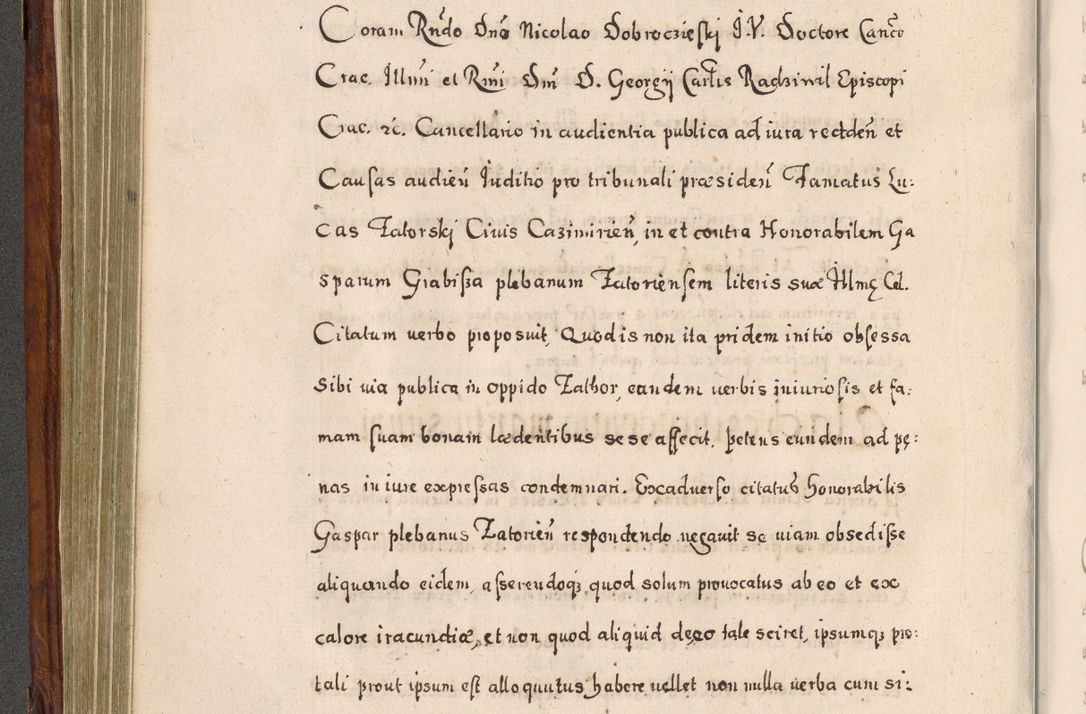 Coram Rndo Dno Nicolao Dobroczięski J.V. Doctore Canco
Crac. Illmi et Rmi Dni D. Georgij Carlis Radziwil Episcopi
Crac. &c. Cancellario in audientia publica ad iura redden̄ et
Causas audien̄ Juditio pro tribunali præsiden̄ Famatus Lu:
cas Zatorskj Ciuis Cazimirien̄, in et contra Honorabilem Ga
sparum Grabißa plebanum Zatoriensem literis suæ Illmę Cel.
Citatum verbo proposuit, Quod is non ita pridem initio obsessa
sibi uia publica in oppido Zathor, eandem uerbis iniuriosis et fa:
mam suam bonam lædentibus sese affecit, petens eundem ad pę:
nas in iure expressas condemnari. Exaduerso citatus honorabilis
Gaspar plebanus Zatorien̄ respondendo negauit se uiam obsedisse
aliquando eidem, asserendoqȝ quod solum prouocatus ab eo et ex
calore iracundiæ, et non quod aliquid de eo tale sciret, ipsumqȝ pro:
tali prout ipsum est alloquutus habere uellet non nulla uerba cum si: